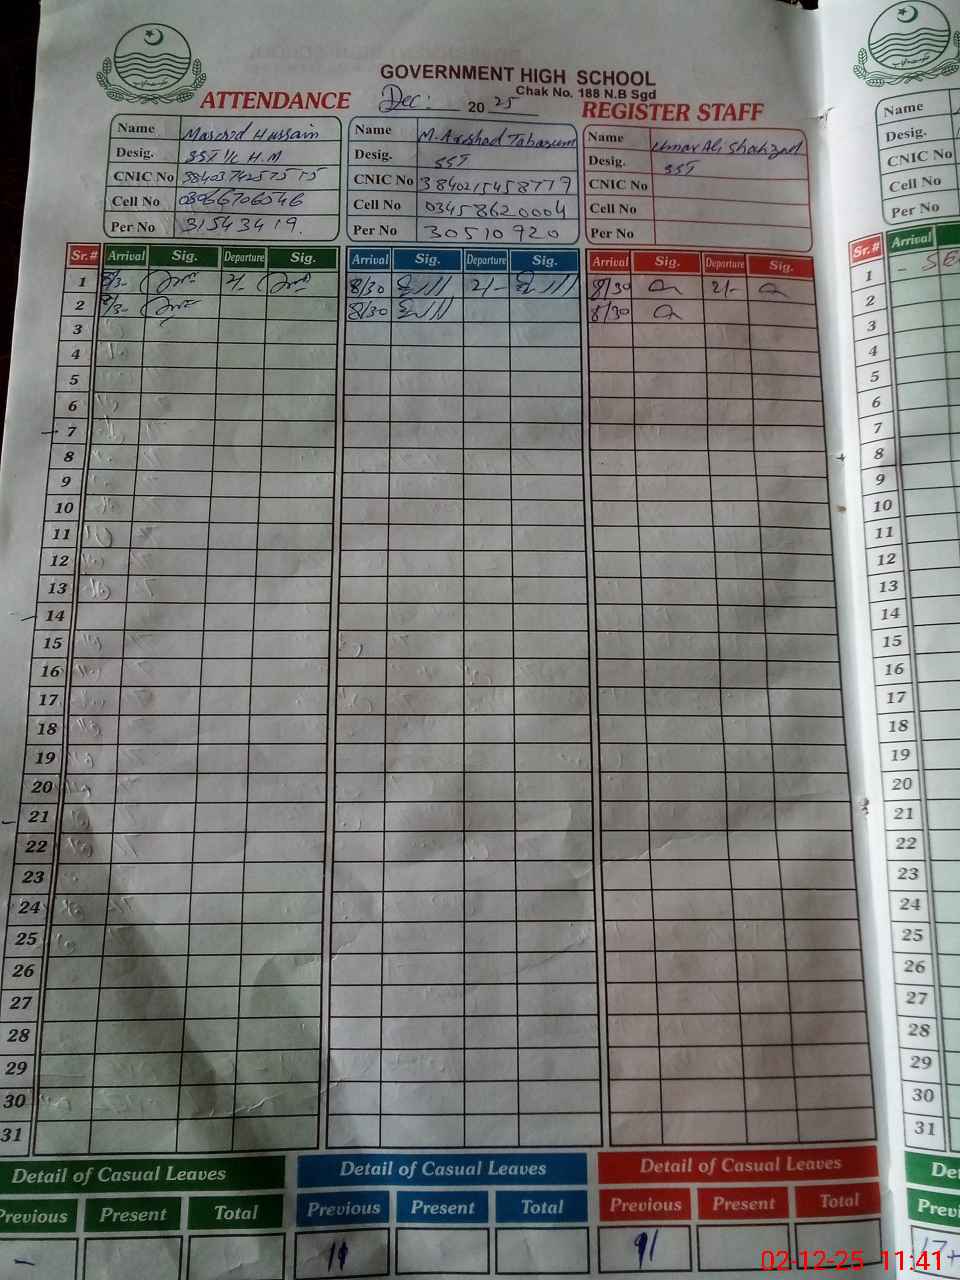 GOVERNMENT HIGH SCHOOL
Chak No. 188 N.B Sgd
ATTENDANCE Dec: 2025 REGISTER STAFF
Name Masood Hussain Name M. Arshad Tabasum Name Umar Ali Shahzad Name
Desig. SST I/C H.M Desig. SST Desig. SST Desig.
CNIC No CNIC No 3840215458779 CNIC No CNIC No
Cell No 03966706046 Cell No 03458620004 Cell No Cell No
Per No 31543419. Per No 30510920 Per No Per No
Sr.# Arrival Sig. Departure Sig. Arrival Sig. Departure Sig. Arrival Sig. Departure Sig. Sr.# Arrival
1 8/3- 2/- 8/30 2/- 8/30 2/- 1
2 8/3- 8/30 8/30 2
3 3
4 4
5 5
6 6
7 7
8 8
9 9
10 10
11 11
12 12
13 13
14 14
15 15
16 16
17 17
18 18
19 19
20 20
21 21
22 22
23 23
24 24
25 25
26 26
27 27
28 28
29 29
30 30
31 31
Detail of Casual Leaves Detail of Casual Leaves Detail of Casual Leaves
Previous Present Total Previous Present Total Previous Present Total
- 11 91 17+
02-12-25 11:41